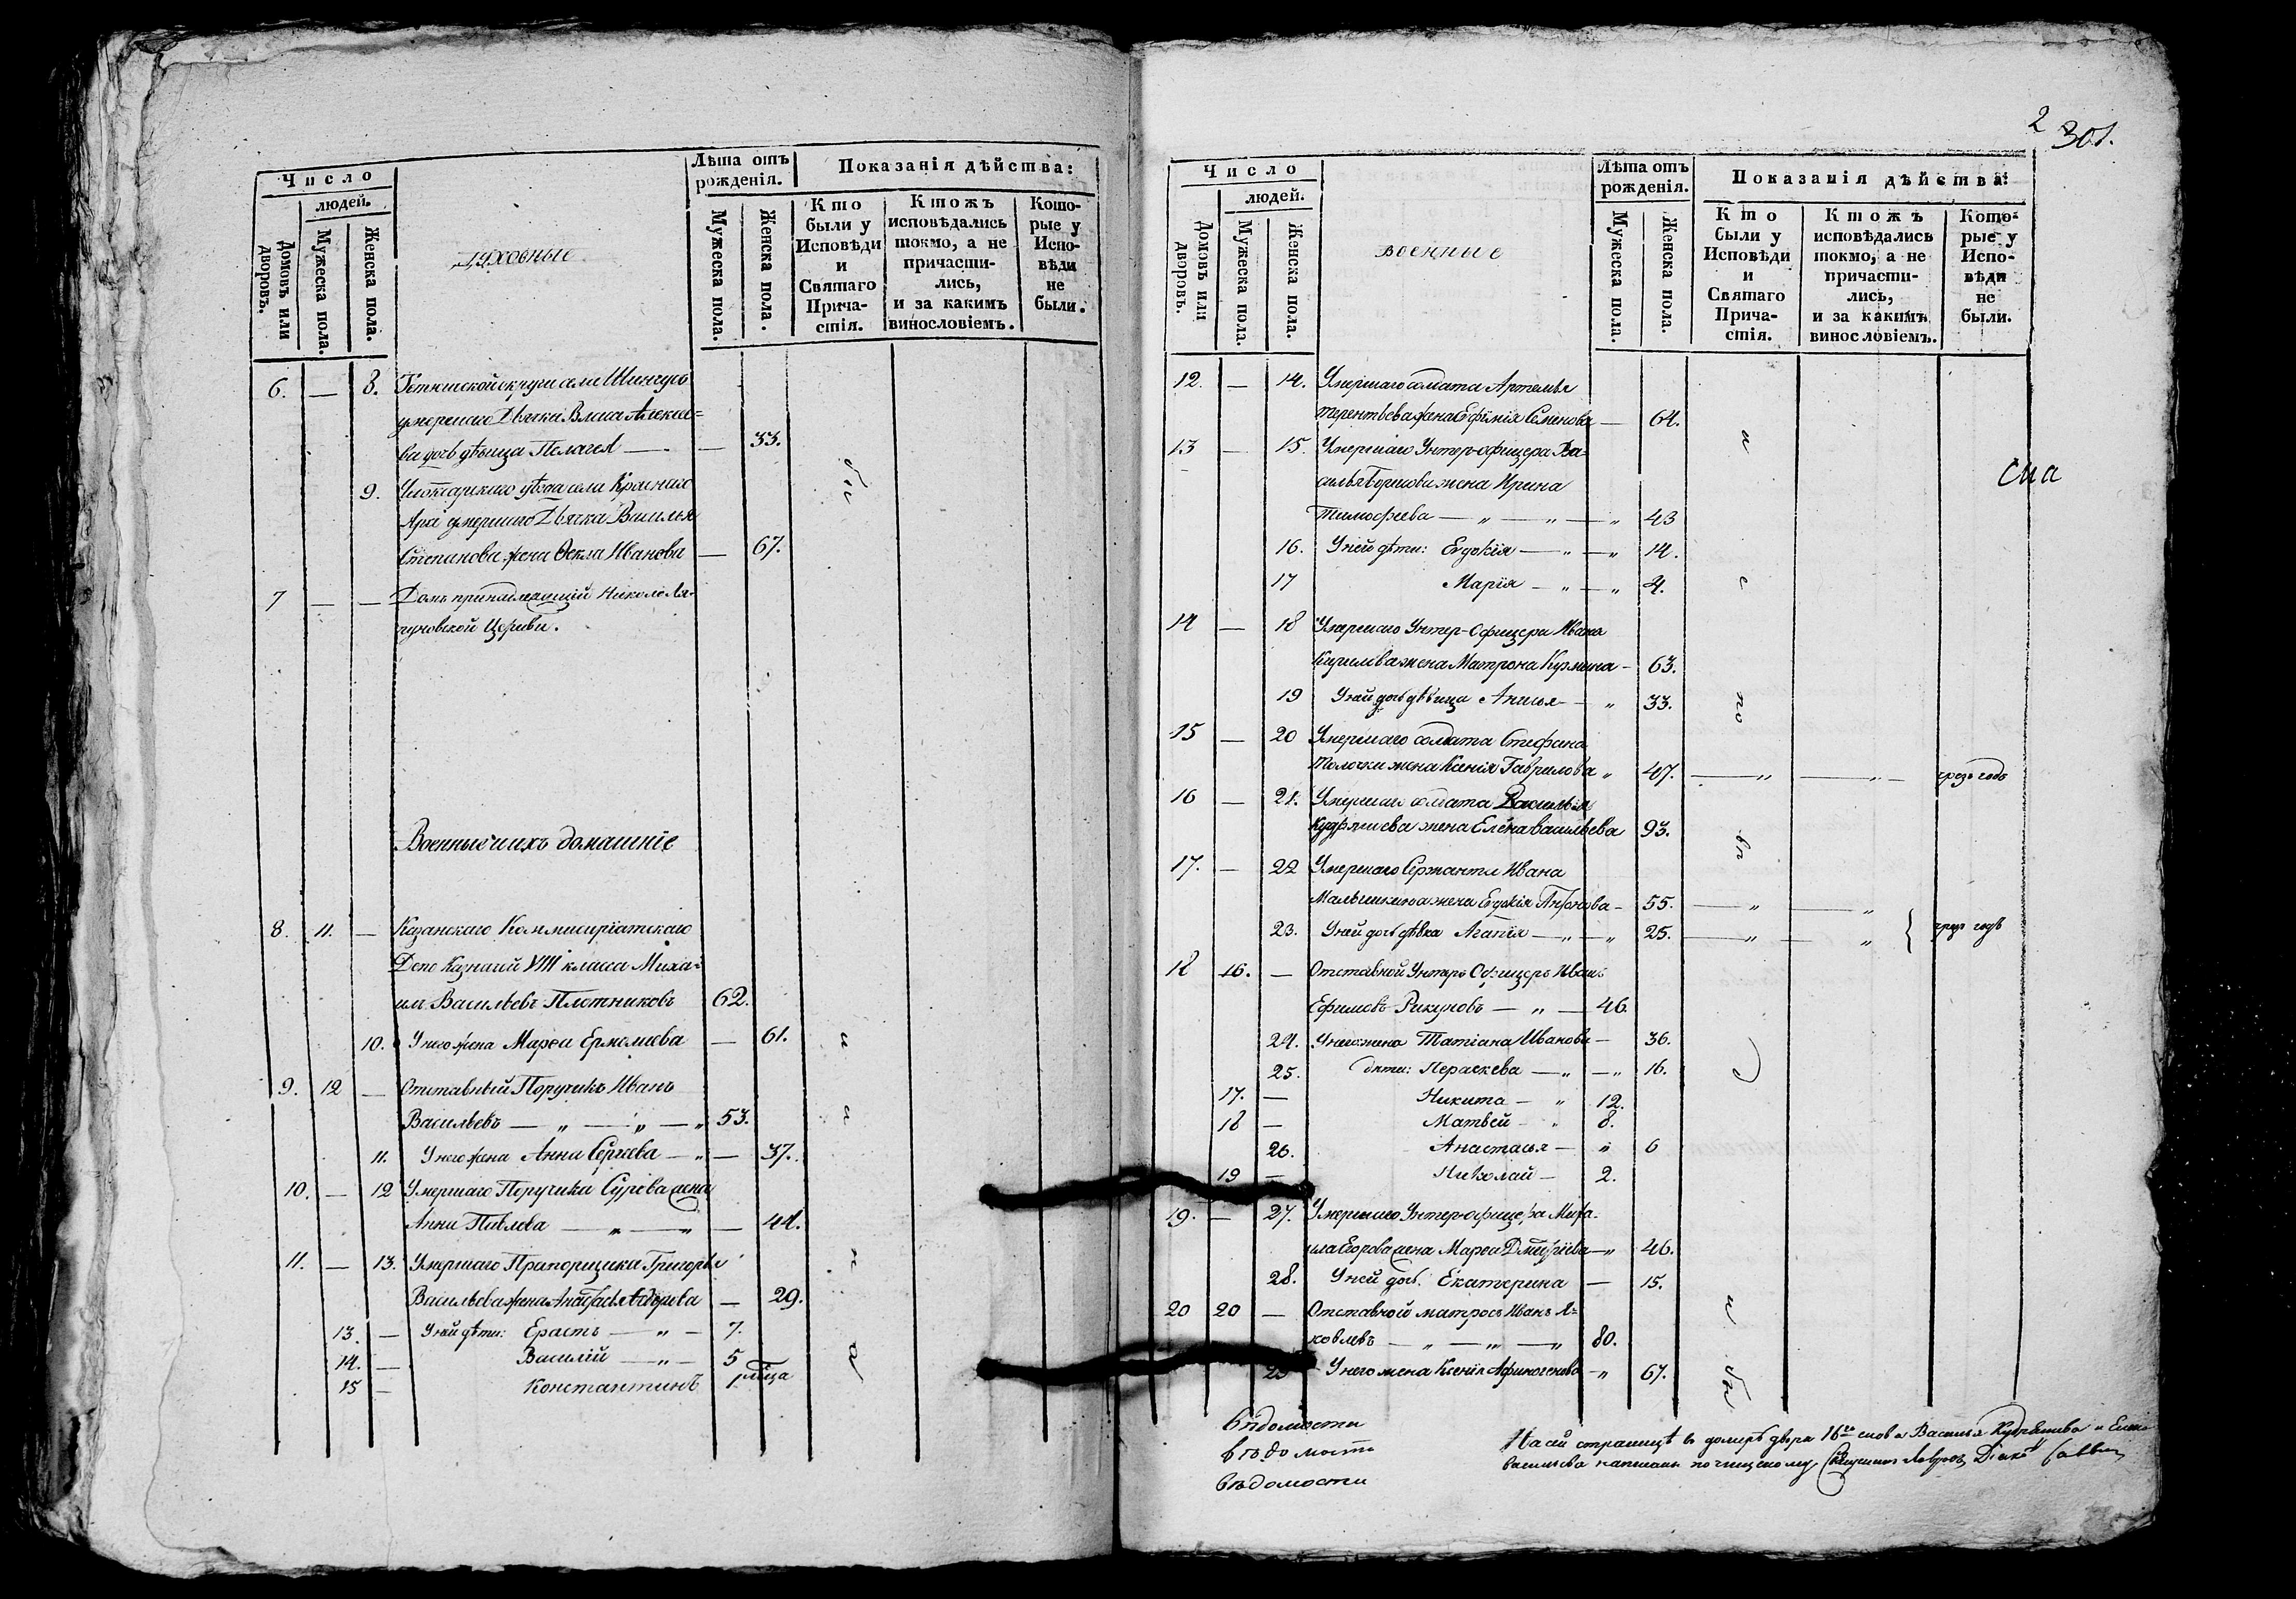 Число
людей.
Домовъ или дворовъ.
Мужеска пола.
Женска пола.
духовные
Лѣта отъ рожденія.
Мужеска пола.
Женска пола.
Показанія дѣйства:
Кто были у Исповѣди и Святаго Прича-стія.
Ктожъ исповѣдались токмо, а не причасти-лись, и за какимъ винословіемъ.
Кото-рые у Испо-вѣди не были.
6. — 8. Тетюшской округи села
умершаго Дьячка Власа Алексее=
ва дочь дѣвица Пелагея — — 33.
9. уѣзда села Красныхъ
Яра умершаго Дьячка Василья
Степанова жена Ѳекла Иванова — 67.
7 — — Домъ принадлежащій Николо Ля-
пуновской Церкви.
Военные и ихъ домашніе
8. 11. — Казанскаго Коммисаріатскаго
Депо Казначей VIII класса Миха-
илъ Васильевъ Плотниковъ 62.
10. У него жена Марѳа Ермолаева — 61.
9. 12 — Отставный Поручикъ Иванъ
Васильевъ — „ — „ — „ 53.
11. У него жена Анна Сергеева — „ — 37.
10. — 12 Умершаго Поручика Сурова жена
Анна Павлова — „ — „ — 44.
11. — 13. Умершаго Прапорщика Григорья
Васильева жена Анастасья Ѳедорова — 29.
13. — У ней дѣти: Ерастъ — „ — 7.
14. — Василій — „ — 5
15 — Константинъ 1 года
2
301.
Число
людей.
Домовъ или дворовъ.
Мужеска пола.
Женска пола.
военные
Лѣта отъ рожденія.
Мужеска пола.
Женска пола.
Показанія дѣйства:
Кто были у Исповѣди и Святаго Прича-стія.
Ктожъ исповѣдались токмо, а не причасти-лись, и за какимъ винословіемъ.
Кото-рые у Испо-вѣди не были.
12. — 14. Умершаго солдата Артемья
Терентьева жена Ефимія Семенова — 64.
13 — 15. Умершаго Унтер-офицера Ва-
силья Борисова жена Ирина
Тимофеева — „ — „ — „ 43
16. У ней дѣти: Евдокія — „ — „ 14.
17 Марія — „ — „ 4.
14 — 18 Умершаго Унтер-Офицера Ивана
Кирилова жена Матрона Кузмина — 63.
19 У ней дочь дѣвица Анисья — „ 33.
15 — 20 Умершаго солдата Стефана
Толочки жена Ксенія Гаврилова „ 47. — „ — „ — чрезъ годъ
16 — 21. Умершаго солдата Василья
Кудряшева жена Елена Васильева 93.
17. — 22 Умершаго Сержанта Ивана
Малышкина жена Евдокія Антонова — 55. — „ — „
23. У ней дочь дѣвка Агапія — „ — „ 25. — „ — „ } чрезъ годъ
18 16. — Отставной Унтеръ Офицеръ Иванъ
Ефимовъ Рикуновъ — „ — 46.
24. У него жена Татіана Иванова — 36.
25. дѣти: Пераскева — „ — „ 16.
17. — Никита — „ 12.
18 — Матвѣй — „ 8.
26. Анастасья — „ 6
19 — Николай — 2.
19. — 27. Умершаго Унтер-офицера Миха-
ила Егорова жена Марѳа Дмитріева — „ 46.
28. У ней дочь Екатерина — 15.
20 20 — Отставной матросъ Иванъ Я-
ковлевъ — „ — „ — „ 80.
29 У него жена Ксенія Афиногенова — „ 67.
вѣдомости
вѣдомости
вѣдомости
На сей страницѣ въ двора 16го слова Василья Кудряшева и Елена
Васильева написаны по чищеному. Священникъ Лавровъ Діаконъ